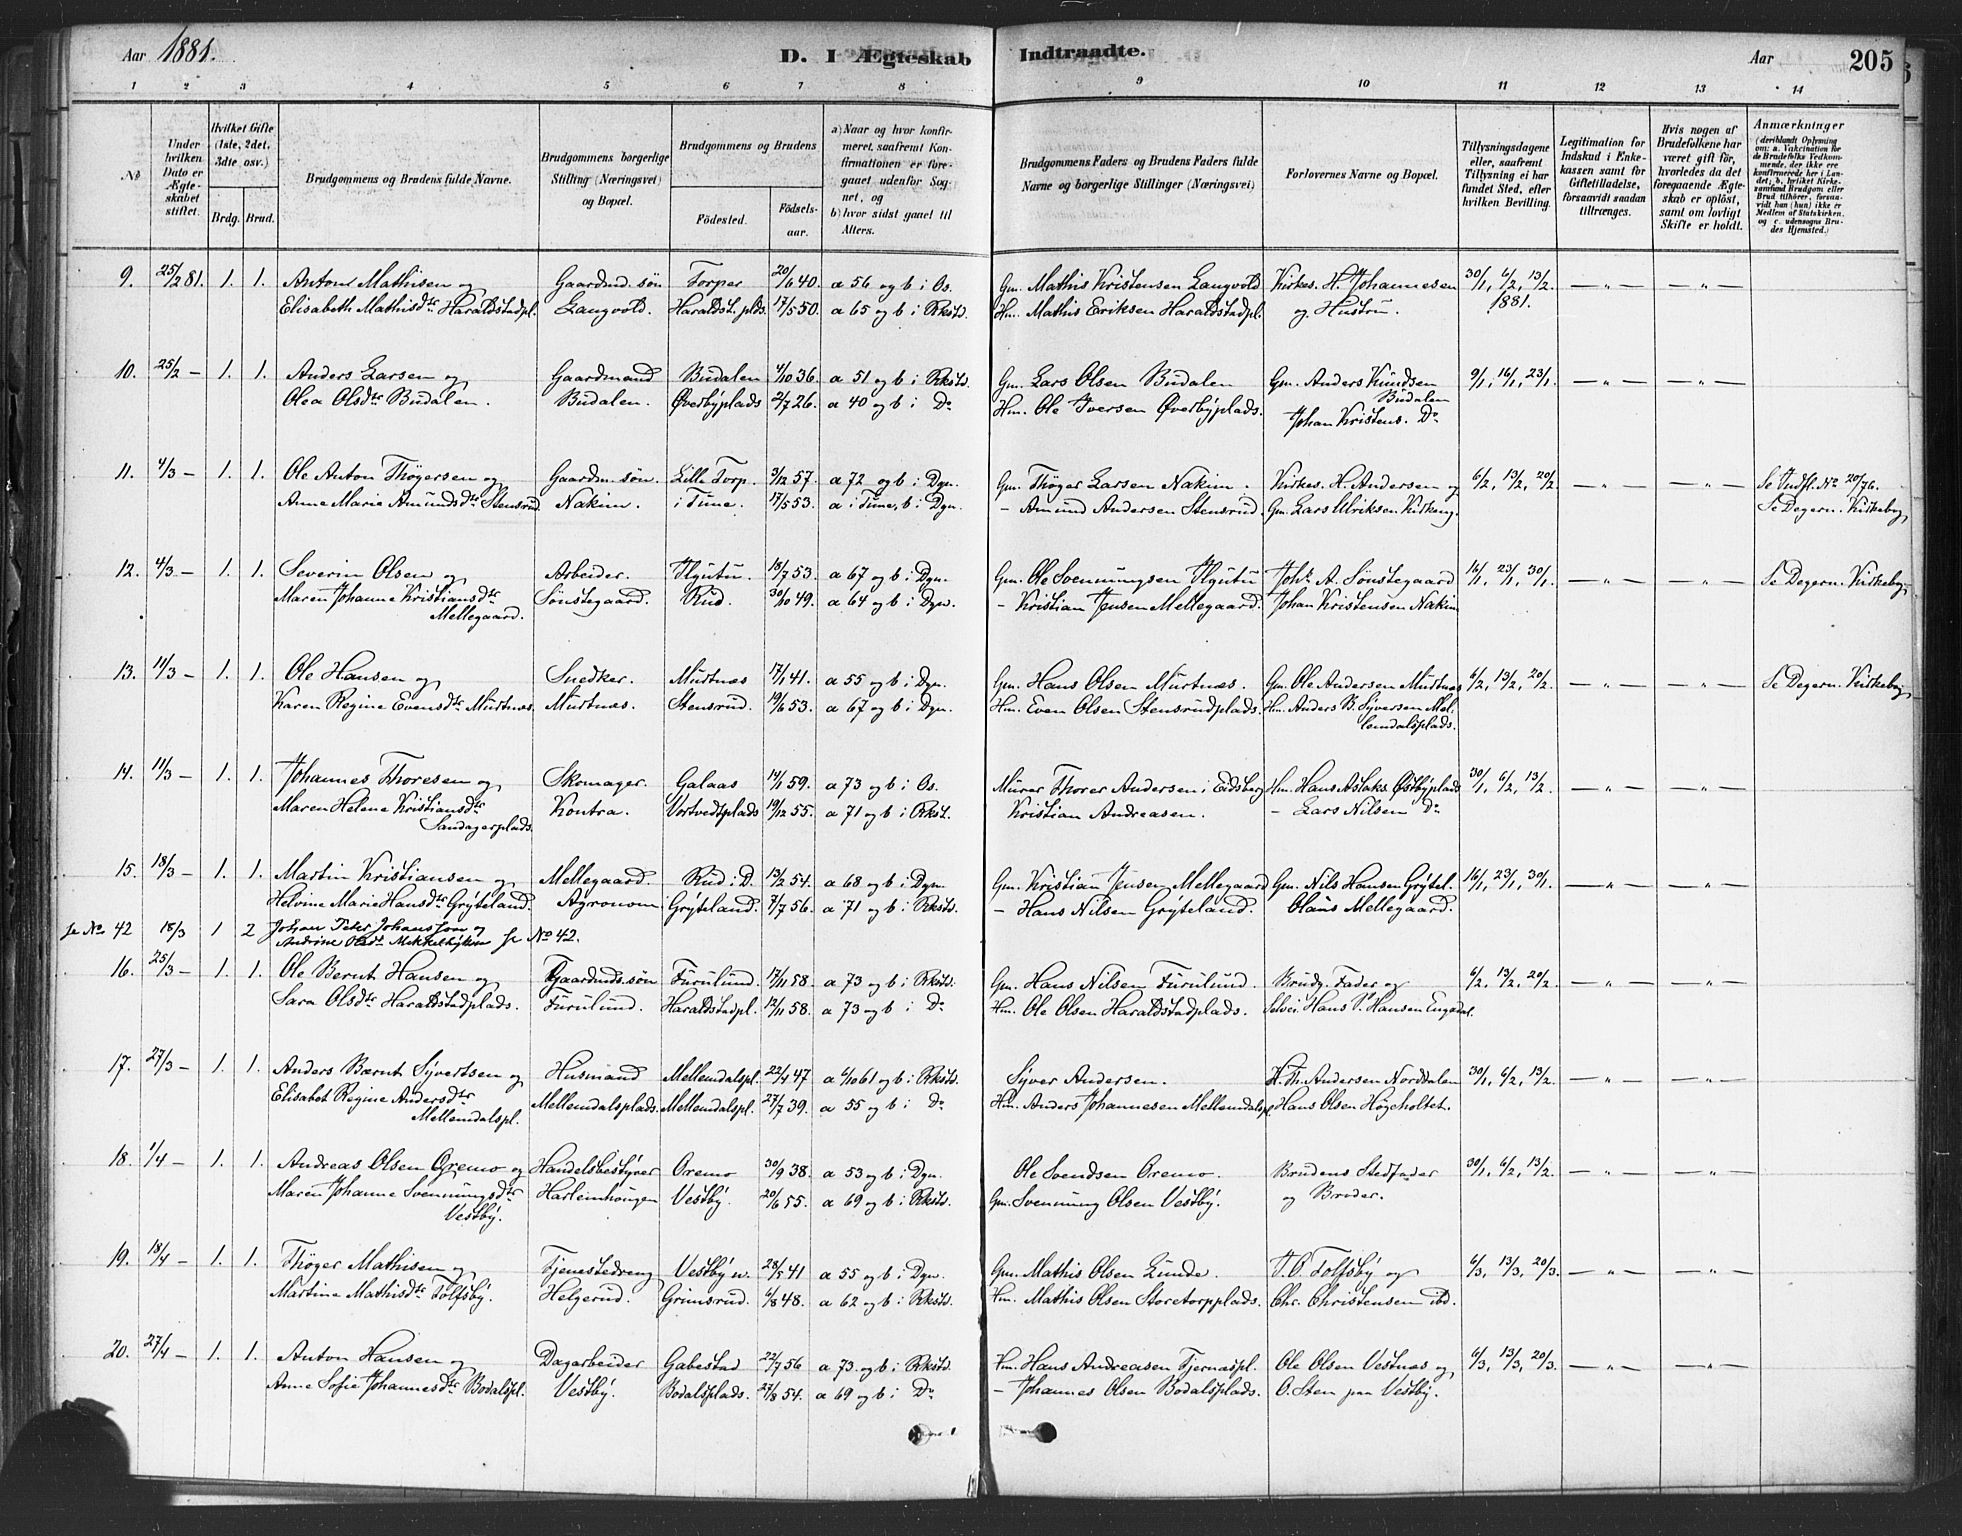 Aar 1881.
D. I Ægteskab Indtraadte.
Aar 205
1 2 3 4 5 6 7 8 9 10 11 12 13 14
No
Under hvilken Dato er Ægteskabet stiftet.
Hvilket Gifte (1ste, 2det, 3die osv.)
Brdg. Brud.
Brudgommens og Brudens fulde Navne.
Brudgommens borgerlige Stilling (Næringsvei) og Bopæl.
Brudgommens og Brudens
Födested.
Födsels-aar.
a) Naar og hvor konfirmeret, saafremt Konfirmationen er foregaaet udenfor Sognet, og
b) hvor sidst gaaet til Alters.
Brudgommens Faders og Brudens Faders fulde Navne og borgerlige Stillinger (Næringsvei)
Forlovernes Navne og Bopæl.
Tillysningsdagene eller, saafremt Tillysning ei har fundet Sted, efter hvilken Bevilling.
Legitimation for Indskud i Enkekassen samt for Giftetilladelse, forsaavidt saadan tiltrænges.
Hvis nogen af Brudefolkene har været gift før, hvorledes da det foregaaende Ægteskab er oplöst, samt om lovligt Skifte er holdt.
Anmærkninger (deriblandt Oplysning om: a. Vakcination for de Brudefolks Vedkommende, der ikke ere konfirmerede her i Landet; b. hvilket Kirkesamfund Brudgom eller Brud tilhörer, forsaavidt han (hun) ikke er Medlem af Statskirken, og c. udensogns Brudes Hjemsted.)
9. 25/2 81. 1. 1. Anton Mathisen og Gaardmd. søn Torper 20/6 40. a 56 og b i Os. Gm. Mathis Kristensen Langvold Kirkes. H. Johannesen 30/1, 6/2, 13/2. — „ — — „ —
Elisabeth Mathisdtr Haraldstadpl. Langvold. Haraldst. plds. 17/5 50. a 65 og b i Rkstd. Hm. Mathis Eriksen Haraldstadpl. og Hustru. 1881.
10. 25/2 — 1. 1. Anders Larsen og Gaardmand Budalen 4/10 36. a 51 og b i Rkstd. Gm. Lars Olsen Budalen Gm. Anders Knudsen Budalen 9/1, 16/1, 23/1. — „ — — „ —
Olea Olsdtr Budalen. Budalen. Øverbyplads 2/7 26. a 40 og b i Do Hm. Ole Iversen Øverbyplads. Johan Kristens. Do
11. 4/3 — 1. 1. Ole Anton Thøgersen og Gaardm. søn. Lille Torp. 3/12 57. a 72 og b i Dgn. Gm. Thøger Larsen Nakim. Kirkes. H. Andersen og 6/2, 13/2, 20/2. — „ — — „ — Se Indfl. No 20/76.
Anne Marie Amundsdtr Stensrud Nakim. i Tune. 17/5 53. a i Tune, b i Dgn. — Amund Andersen Stensrud. Gm. Lars Ulriksen Kirkeng. Se Degern. Kirkebog
12. 4/3 — 1. 1. Severin Olsen og Arbeider. 18/7 53. a 67 og b i Dgn. Gm. Ole Svenningsen Joh. A. Sønstegaard 16/1, 23/1, 30/1. — „ — — „ — Se Degern. Kirkebog
Maren Johanne Kristiansdtr Mellegaard. Sønstegaard. Rud. 30/10 49. a 64 og b i Dgn. — Kristian Jensen Mellegaard. Johan Kristensen Nakim
13. 11/3 — 1. 1. Ole Hansen og Snedker. Murtnæs 17/1 41. a 55 og b i Dgn. Gm. Hans Olsen Murtnæs. Gm. Ole Andersen Murtnæs 6/2, 13/2, 20/2. — „ — — „ — Se Degern. Kirkebog
Karen Regine Evensdtr Murtnæs. Murtnæs. Stensrud. 19/6 53. a 67 og b i Dgn. Hm. Even Olsen Stensrudplads. Hm. Anders B. Syversen Mellemdalsplads.
14. 11/3 — 1. 1. Johannes Thoresen og Skomager. Galaas 14/1 59. a 73 og b i Os. Murer Thorer Andersen i Eidsberg Hm. Hans Aslaks. Østbyplads 30/1, 6/2, 13/2. — „ — — „ —
Maren Helene Kristiansdtr Sandagerplads. Kontra. Vortvedtplads 19/12 55. a 71 og b i Rkst. Kristian Andreasen. — Lars Nilsen Do
15. 18/3 — 1. 1. Martin Kristiansen og Mellegaard. Rud i D. 13/2 54. a 68 og b i Dgn. Gm. Kristian Jensen Mellegaard Gm. Nils Hansen Grytel. 16/1, 23/1, 30/1. — „ — — „ —
Helvine Marie Hansdtr Gryteland. Agronom Gryteland. 7/7 56. a 71 og b i Rkstd. — Hans Nilsen Gryteland. Olaus Mellegaard.
se No 42 18/3 1 2 Johan Peter Johansson og
Andrine Olsdt. Mikkelbykin se No 42.
16. 25/3 — 1. 1. Ole Bernt Hansen og Gaardmds. søn Furulund. 17/11 58. a 73 og b i Rkstd. Gm. Hans Nilsen Furulund. Brudg. Fader og 6/2, 13/2, 20/2. — „ — — „ —
Sara Olsdtr Haraldstadplads. Furulund. Haraldstadpl. 12/11 58. a 73 og b i Do Hm. Ole Olsen Haraldstadplads. Selvei. Hans P. Hansen Engsdal.
17. 27/3 — 1. 1. Anders Bernt Syvertsen og Husmand Mellemdalspl. 22/4 47 a 6/10 61 og b i Rkstd. Syver Andersen. H. Th. Andersen Norddalen 30/1, 6/2, 13/2. — „ — — „ —
Elisabet Regine Andersdtr Mellemdalspl. Mellemdalsplads. Mellemdalspl. 27/7 39. a 55 og b i Do Hm. Anders Johannesen Mellemdalspl. Hans Olsen Høgeholtet.
18. 1/4 — 1. 1. Andreas Olsen Oremo og Handelsbestyrer Oremo 30/9 38. a 53 og b i Dgn. Ole Svendsen Oremo. Brudens Stedfader 30/1, 6/2, 13/2. — „ — — „ —
Maren Johanne Svenningsdtr Vestby. Harlemhougen Vestby. 20/6 55. a 69 og b i Rkstd. Gm. Svenning Olsen Vestby. og Broder.
19. 18/4 — 1. 1. Thøger Mathisen og Tjenestedreng Vestby n. 28/5 41 a 55 og b i Dgn. Gm. Mathis Olsen Lunde. T. O. Tolfsby og 6/3, 13/3, 20/3. — „ — — „ —
Martine Mathisdtr Tolfsby. Helgerud. Grimsrud. 6/8 48. a 62 og b i Rkstd. Hm. Mathis Olsen Storetorpplads. Chr. Christensen ibd.
20. 27/4 — 1. 1. Anton Hansen og Dagarbeider Gabestad 22/7 56 a 73 og b i Rkstd. Hm. Hans Andreasen Tjernæspl. Ole Olsen Vestnæs og 6/3, 13/3, 20/3. — „ — — „ —
Anne Sofie Johannesdtr Bodalspl. Vestby. Bodalsplads. 27/8 54. a 69 og b i Do — Johannes Olsen Bodalsplads. O. Sten paa Vestby.